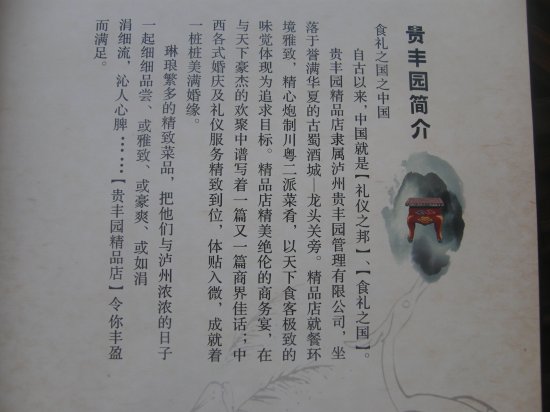 贵丰园简介
食礼之国之中国
自古以来，中国就是【礼仪之邦】、【食礼之国】。
贵丰园精品店隶属泸州贵丰园管理有限公司，坐
落于誉满华夏的古蜀酒城—龙头关旁。精品店就餐环
境雅致，精心炮制川粤二派菜肴，以天下食客极致的
味觉体现为追求目标。精品店精美绝伦的商务宴，在
与天下豪杰的欢聚中谱写着一篇又一篇商界佳话；中
西各式婚庆及礼仪服务精致到位，体贴入微，成就着
一桩桩美满婚缘。
琳琅繁多的精致菜品，把他们与泸州浓浓的日子
一起细细品尝、或雅致、或豪爽、或如涓
涓细流，沁人心脾……【贵丰园精品店】令你丰盈
而满足。